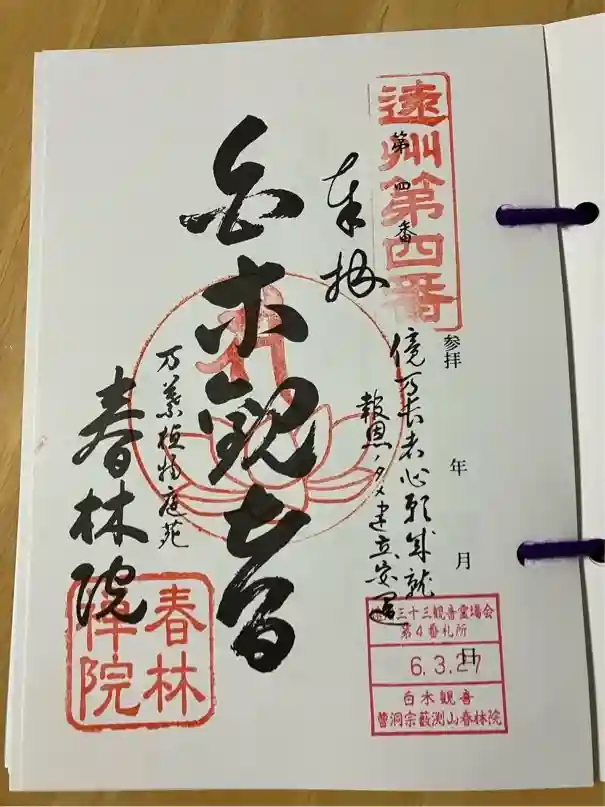 遠州第四番
第四番
参拝 年 月 日
奉拝
億万長者心願成就
報恩ノタメ建立安置
白木観音
万葉植物庭苑
春林院
春林
禅院
三十三観音霊場会
第4番札所
6.3.27
白木観音
曹洞宗藪渕山春林院